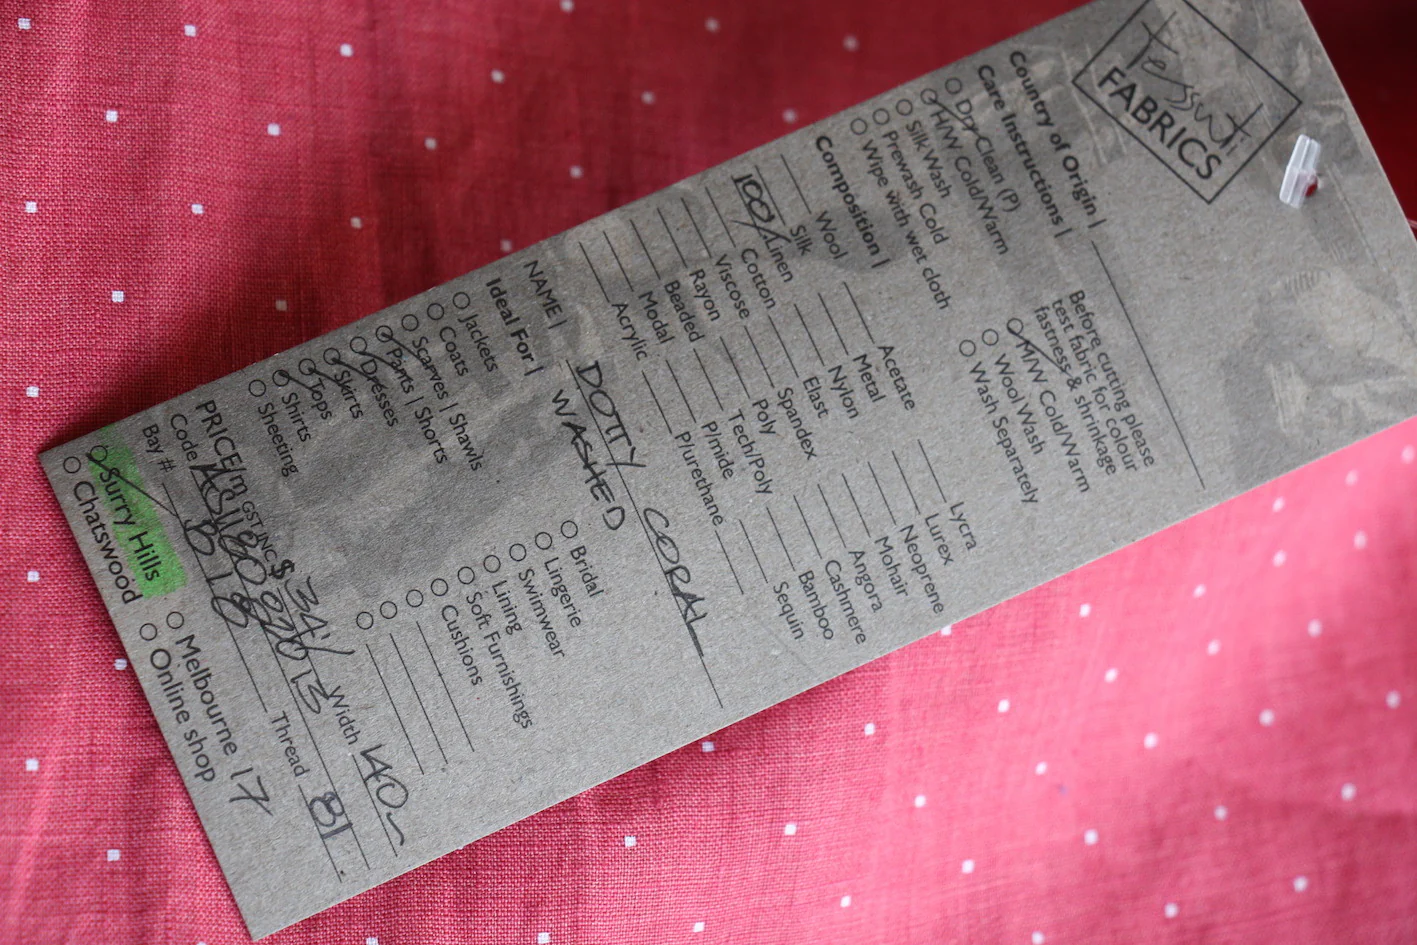 Tessuti
FABRICS
Country of Origin |
Care Instructions |
Dry Clean (P)
H/W Cold/Warm
Silk Wash
Prewash Cold
Wipe with wet cloth
Before cutting please
test fabric for colour
fastness & shrinkage
M/W Cold/Warm
Wool Wash
Wash Separately
Composition |
Wool
Silk
100% Linen
Cotton
Viscose
Rayon
Beaded
Modal
Acrylic
Acetate
Metal
Nylon
Elast
Spandex
Poly
Tech/Poly
P/mide
P/urethane
Lycra
Lurex
Neoprene
Mohair
Angora
Cashmere
Bamboo
Sequin
NAME | DOTTY CORAL
WASHED
Ideal For |
Jackets
Coats
Scarves | Shawls
Pants | Shorts
Dresses
Skirts
Tops
Shirts
Sheeting
Bridal
Lingerie
Swimwear
Lining
Soft Furnishings
Cushions
PRICE/m GST INC $ 34./ Width 140
Code Thread 81
Bay # B 18
Surry Hills
Chatswood
Melbourne 17
Online shop